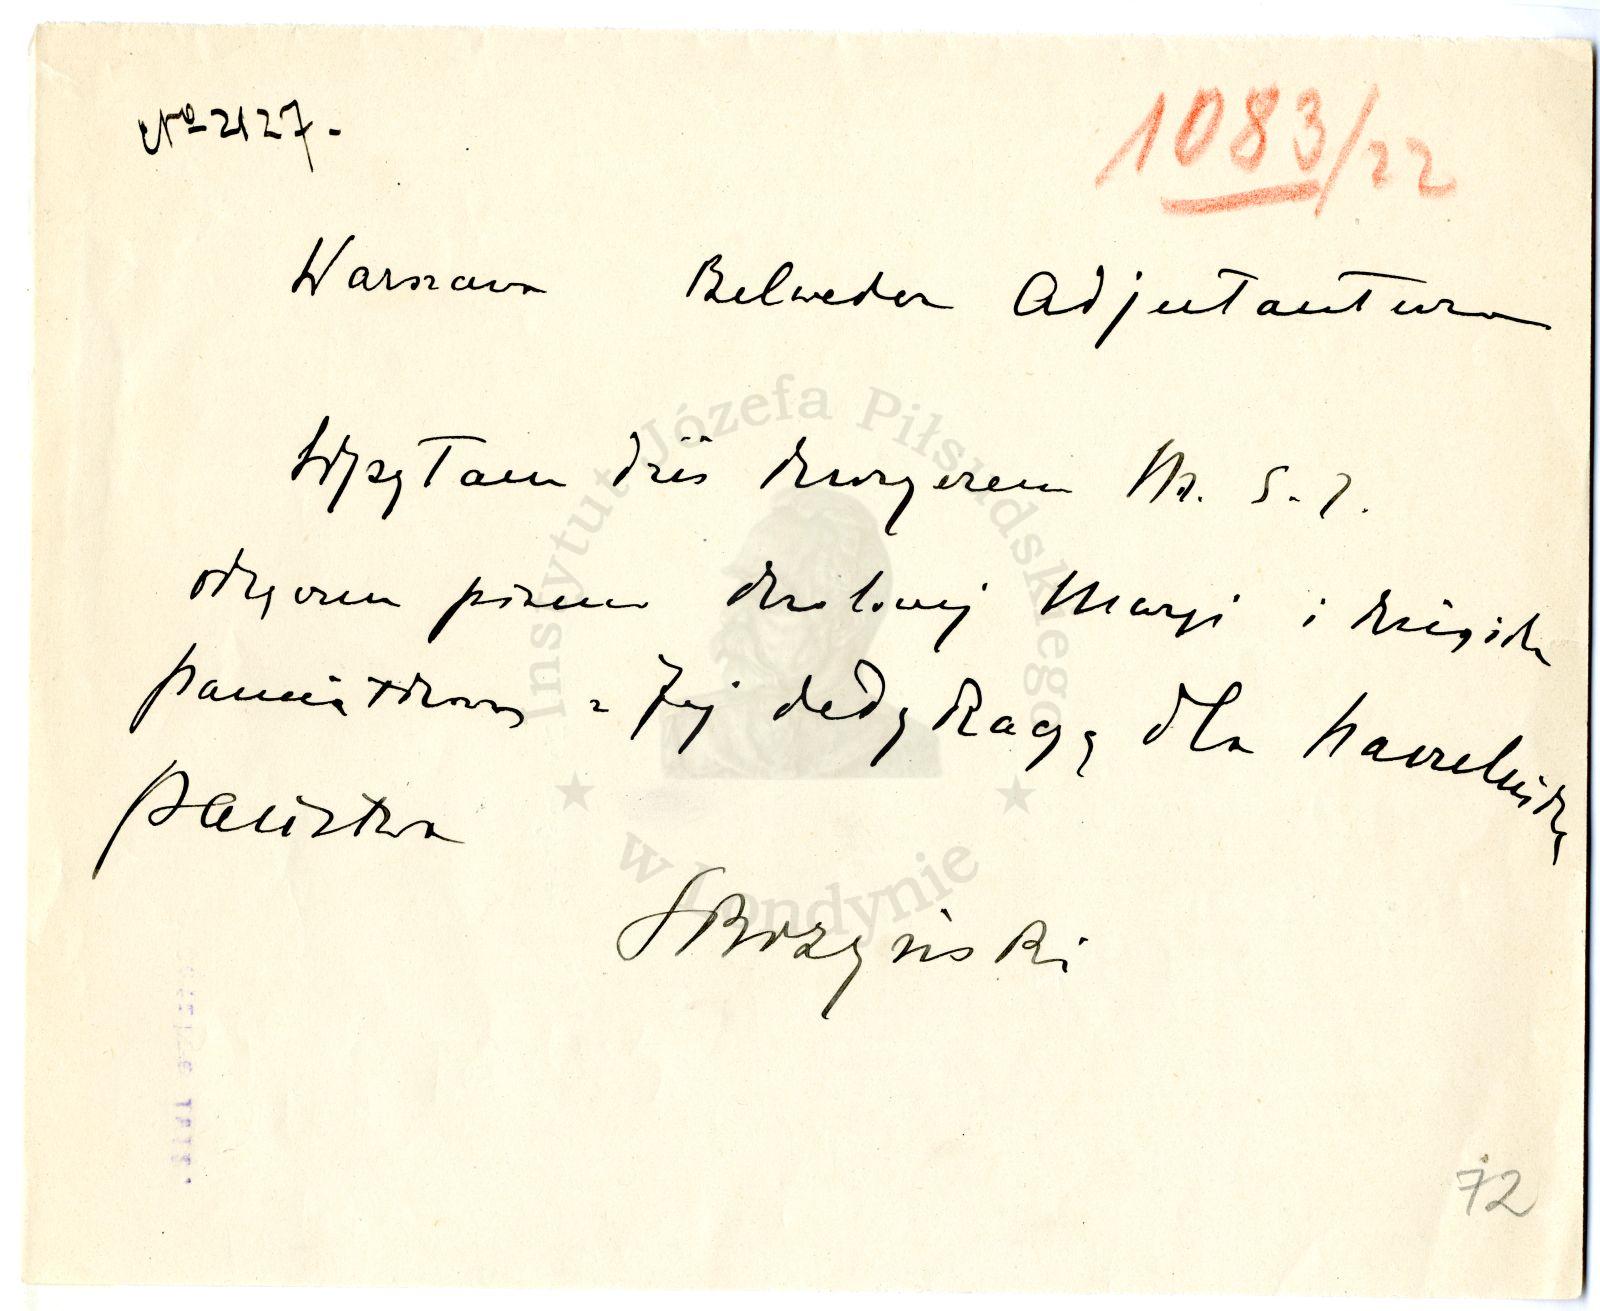 № 2127.-
1083/22
Warszawa Belweder Adjutantura
Wysyłam dziś kurjerem M. S. Z.
odręczne pismo Królowej Maryi i książkę
pamiątkową z Jej dedykacyą dla Naczelnika
Państwa
Skrzyński
72
Instytut Józefa Piłsudskiego
w Londynie